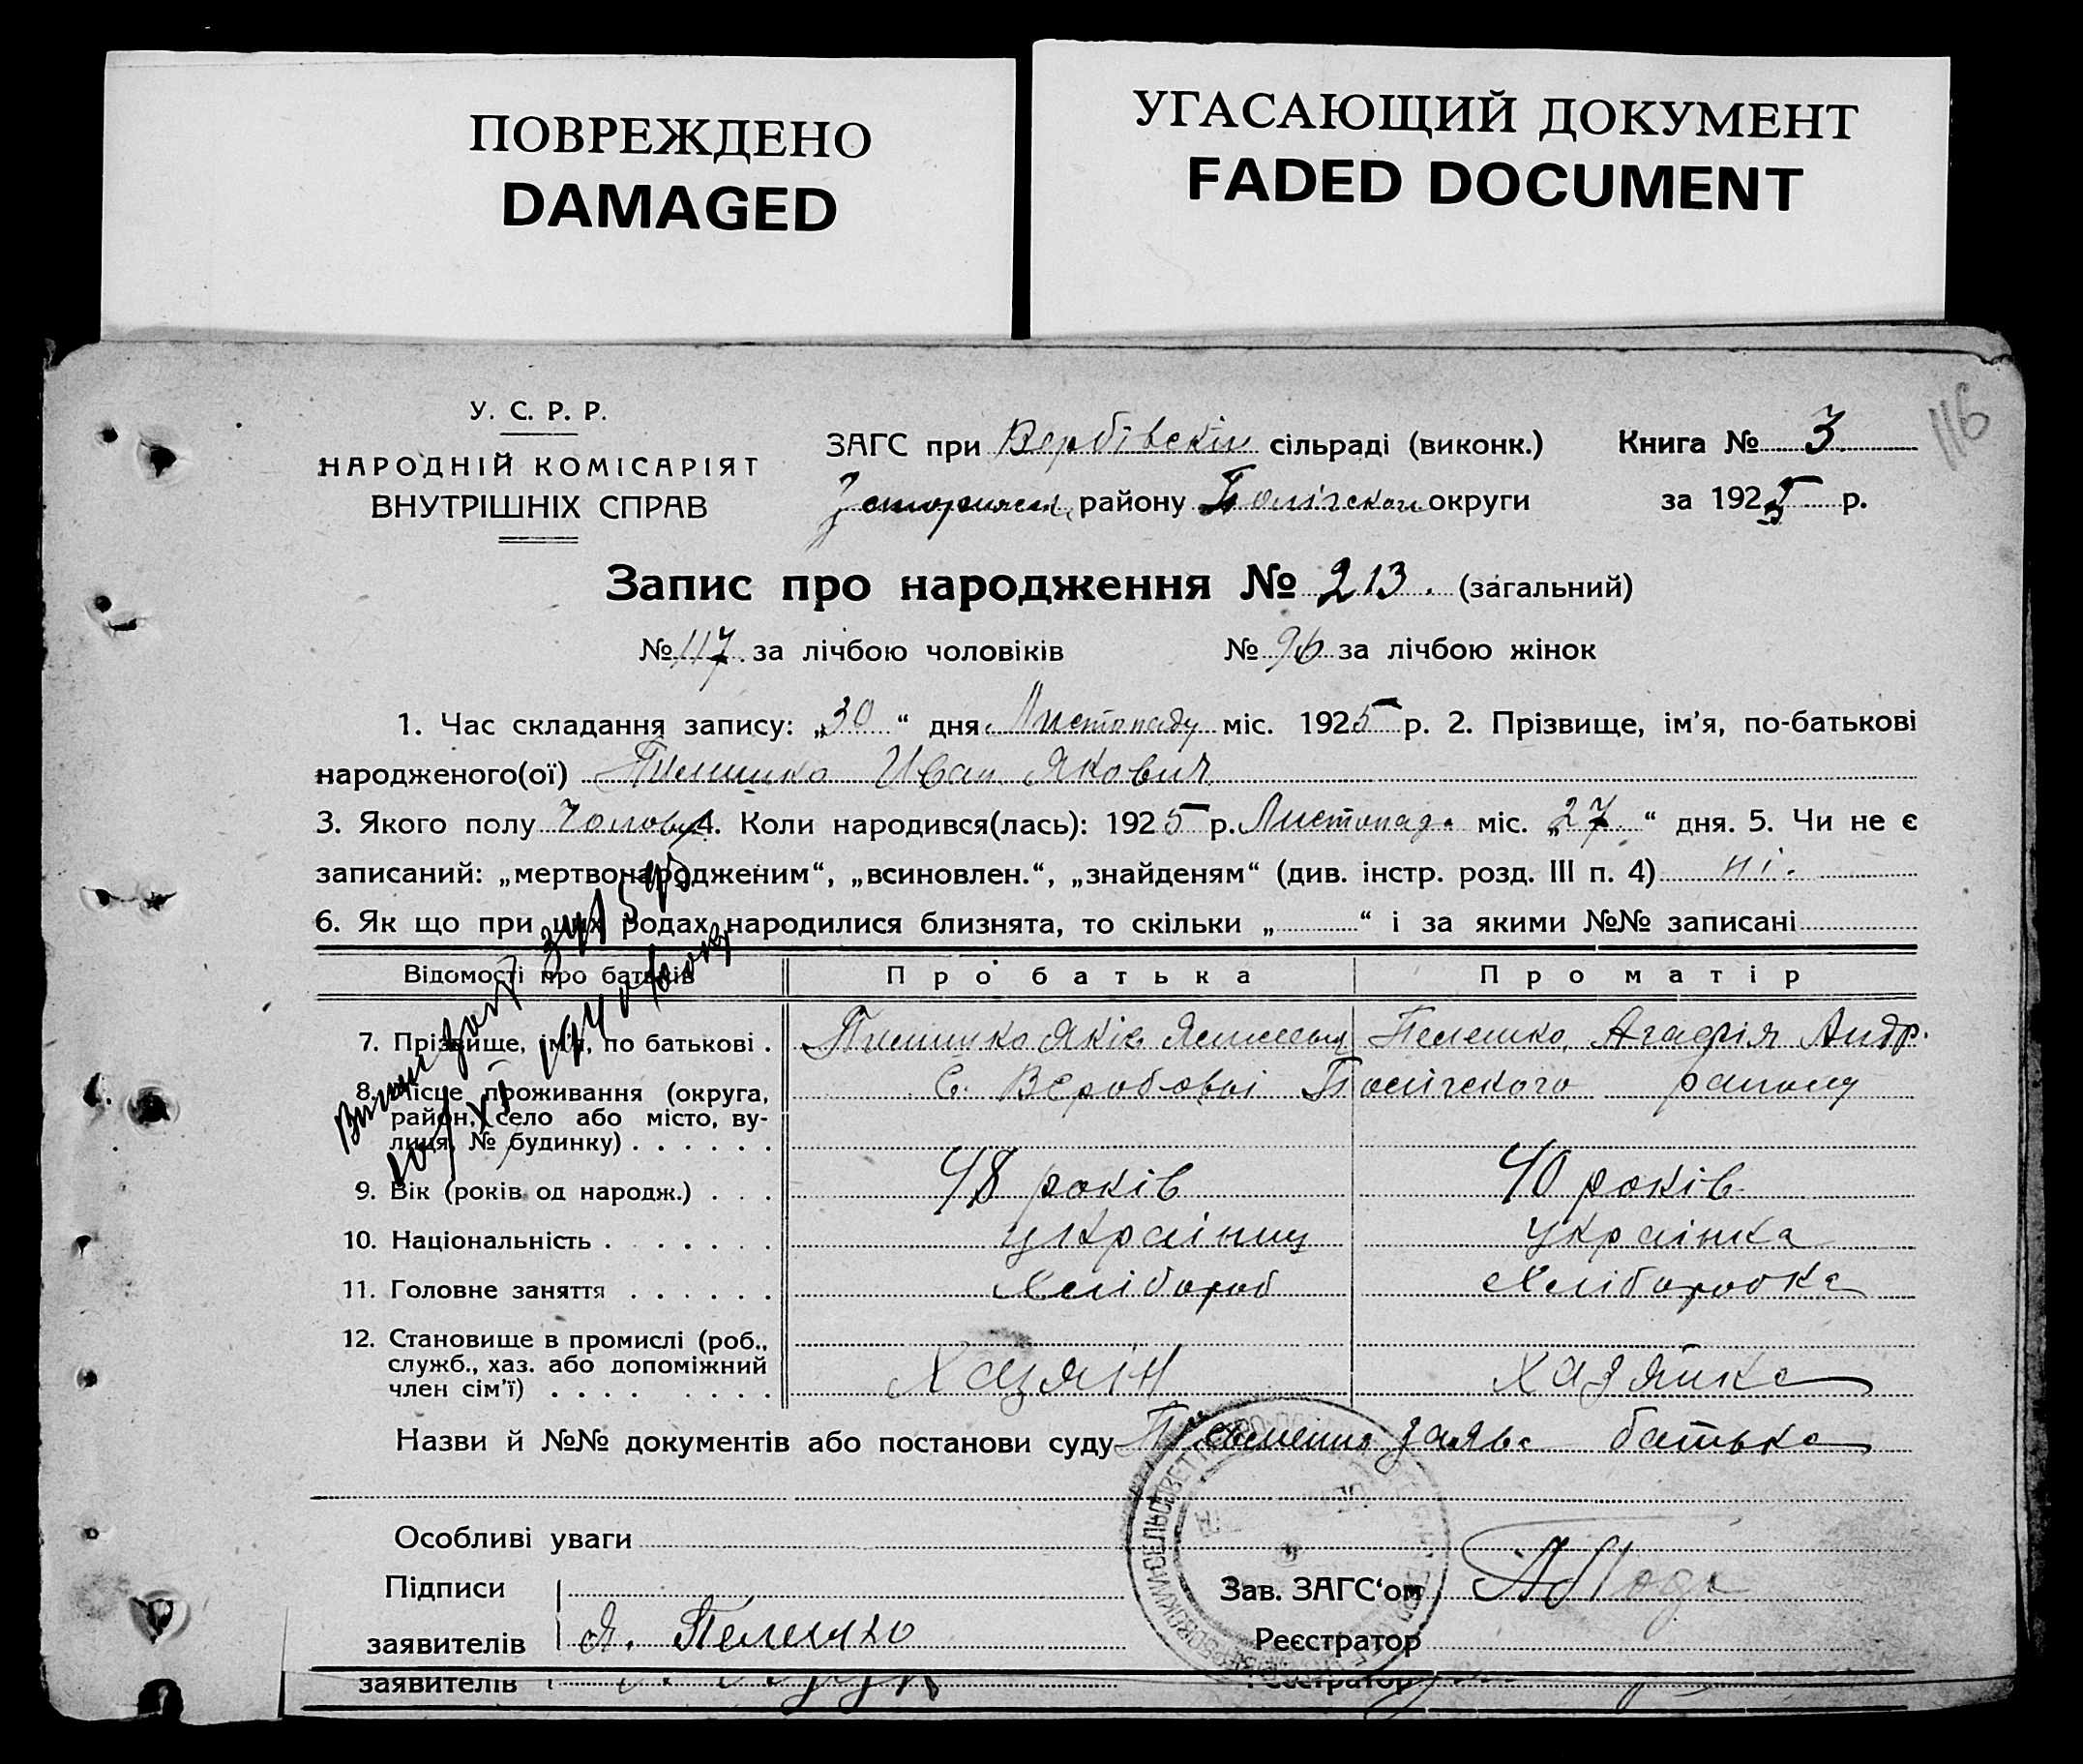 ПОВРЕЖДЕНО
DAMAGED
УГАСАЮЩИЙ ДОКУМЕНТ
FADED DOCUMENT
116
У. С. Р. Р.
НАРОДНІЙ КОМІСАРІЯТ
ВНУТРІШНІХ СПРАВ
ЗАГС при Вербівскій сільраді (виконк.) Книга № 3
району округи за 1925 р.
Запис про народження № 213. (загальний)
№ 117 за лічбою чоловіків № 96 за лічбою жінок
1. Час складання запису: „30“ дня Листопаду міс. 1925 р. 2. Прізвище, ім'я, по-батькові
народженого(ої) Иван Якович
3. Якого полу 4. Коли народився(лась): 1925 р. Листопада міс. „27“ дня. 5. Чи не є
записаний: „мертвонародженим“, „всиновлен.“, „знайденям“ (див. інстр. розд. III п. 4) ні.
6. Як що при цих родах народилися близнята, то скільки „ “ і за якими №№ записані
Відомості про батьків Про батька Про матір
7. Прізвище, ім'я, по батькові . Яків Пелешко, Агафія Андр.
8. Місце проживання (округа,
район, село або місто, ву-
лиця, № будинку) . . . . . .
с.
9. Вік (років од народж.) . . . 48 років 40 років
10. Національність . . . . . . українец українка
11. Головне заняття . . . . . . Хлібороб Хліборобка
12. Становище в промислі (роб.,
служб., хаз. або допоміжний
член сім'ї) . . . . . . . . Хазяїн Хазяйка
Назви й №№ документів або постанови суду заява батька
Особливі уваги
Підписи Зав. ЗАГС'ом
заявителів Я. Пелешко Реєстратор
заявителів Реєстратор